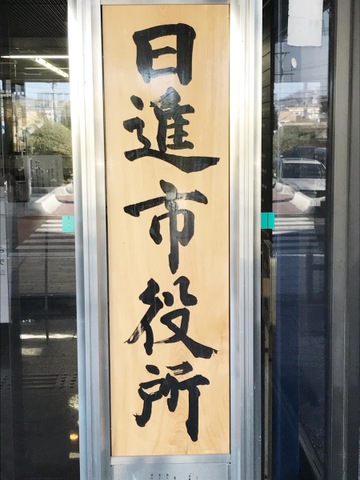 日進市役所